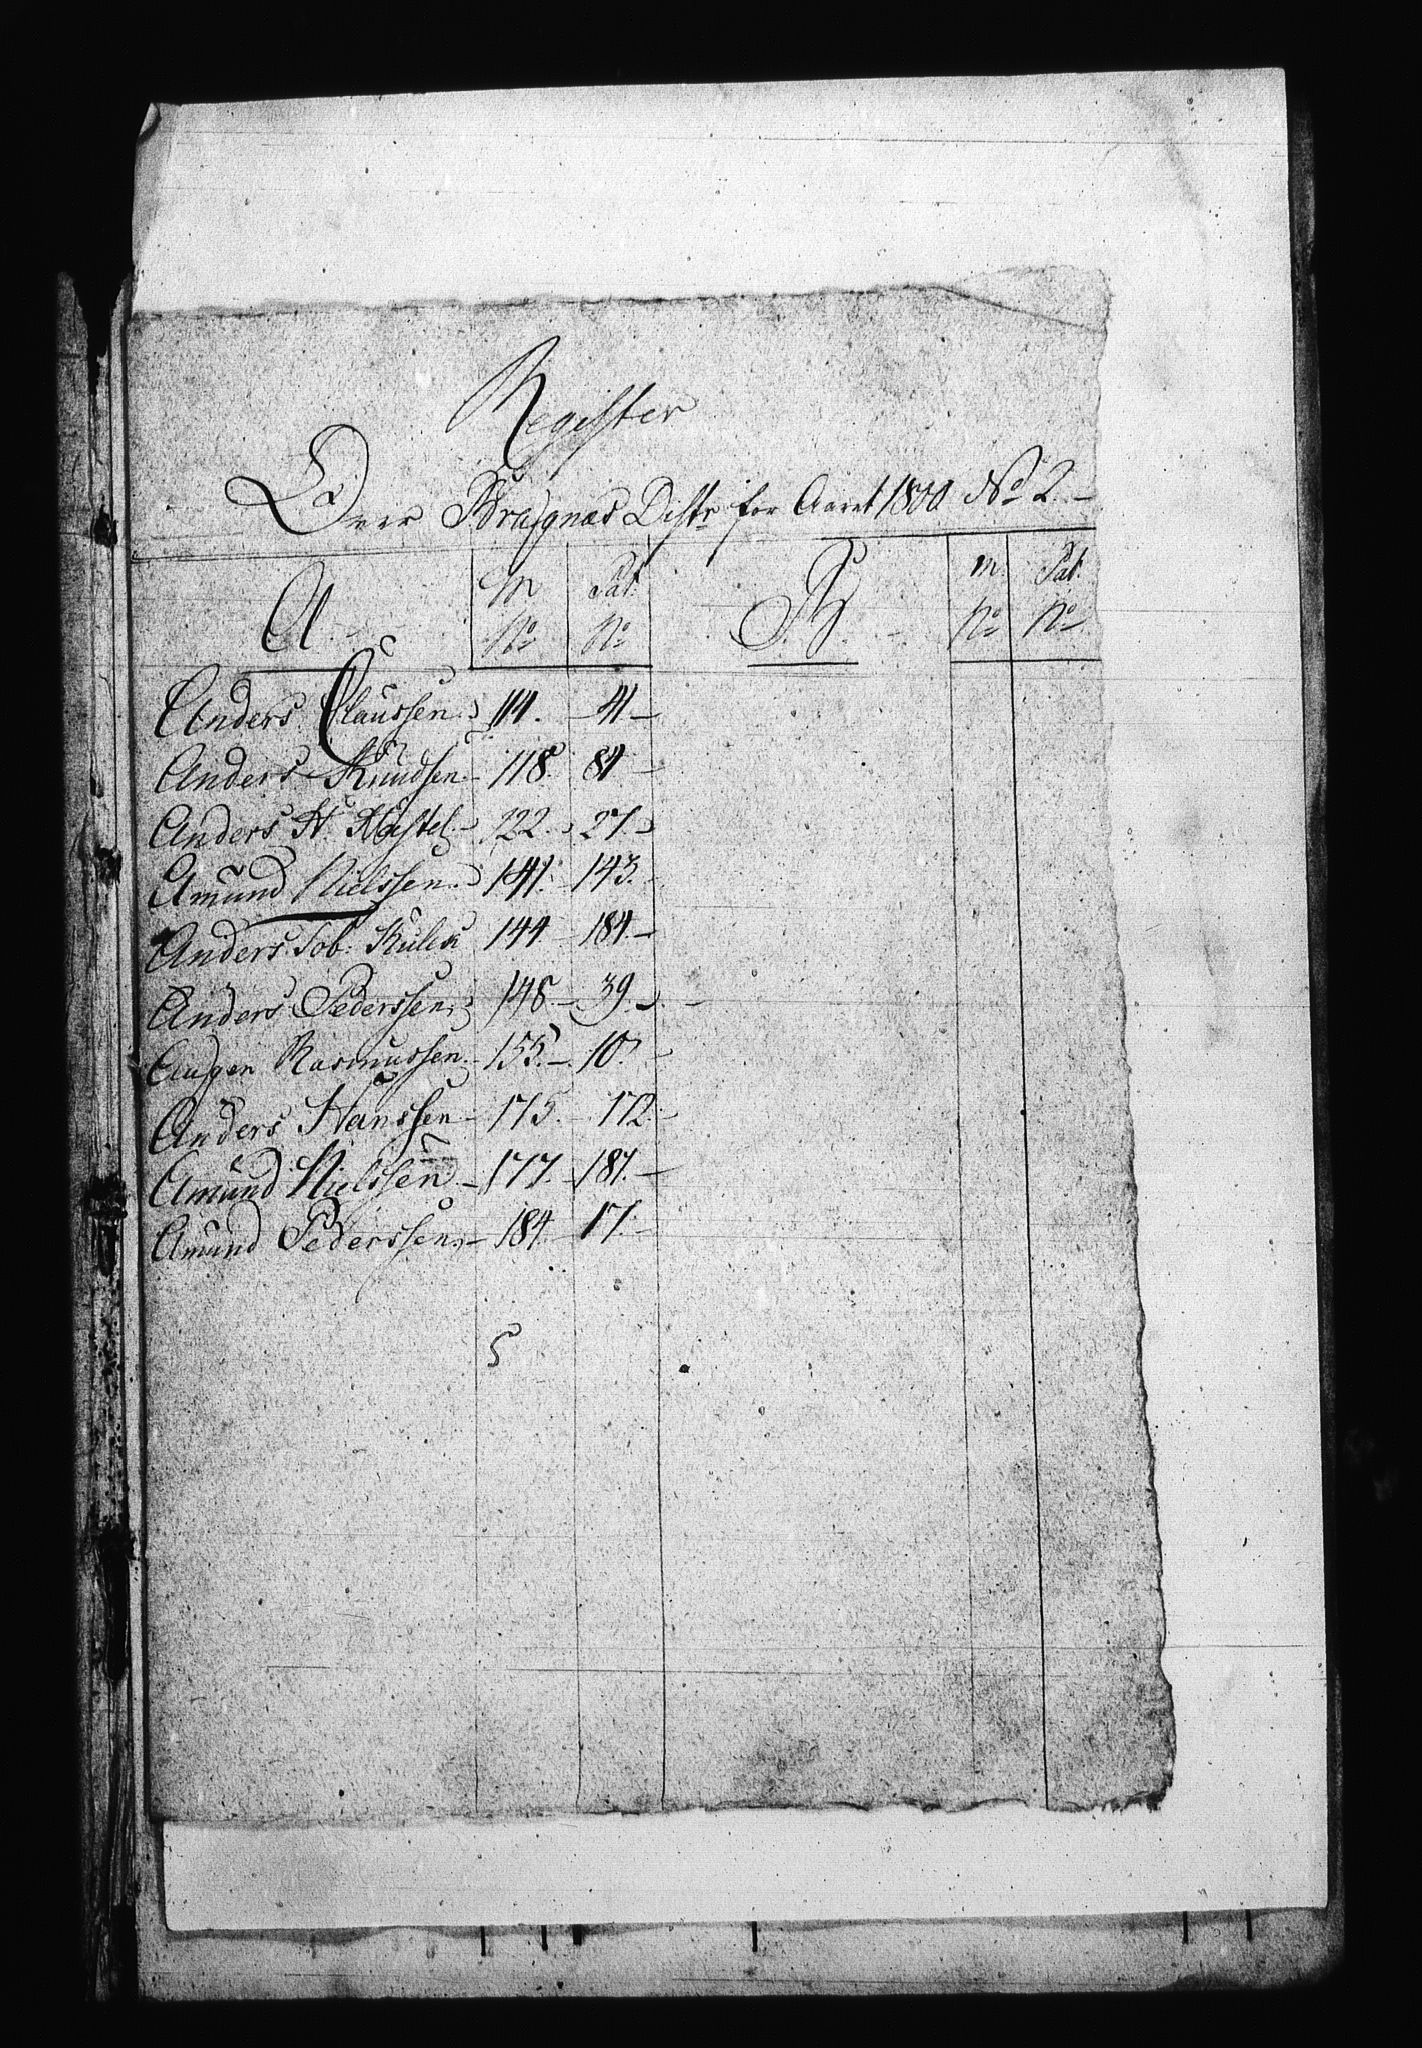 Register
Over Bragnæs Distr for Aaret 1800 No 2.
A. m No Pat. No B. m No Pat. No
Anders Claussen 114. 41
Anders Knudsen 118. 84
Anders H. Kastel 122. 27
Amund Nielssen 141. 143.
Anders Tob. 144 184.
Anders Pederssen 148. 39.
Rasmussen 155. 10.
Anders Hanssen 175. 172.
Amund Nielssen 177. 187.
Amund Pederssen 184. 17.
5